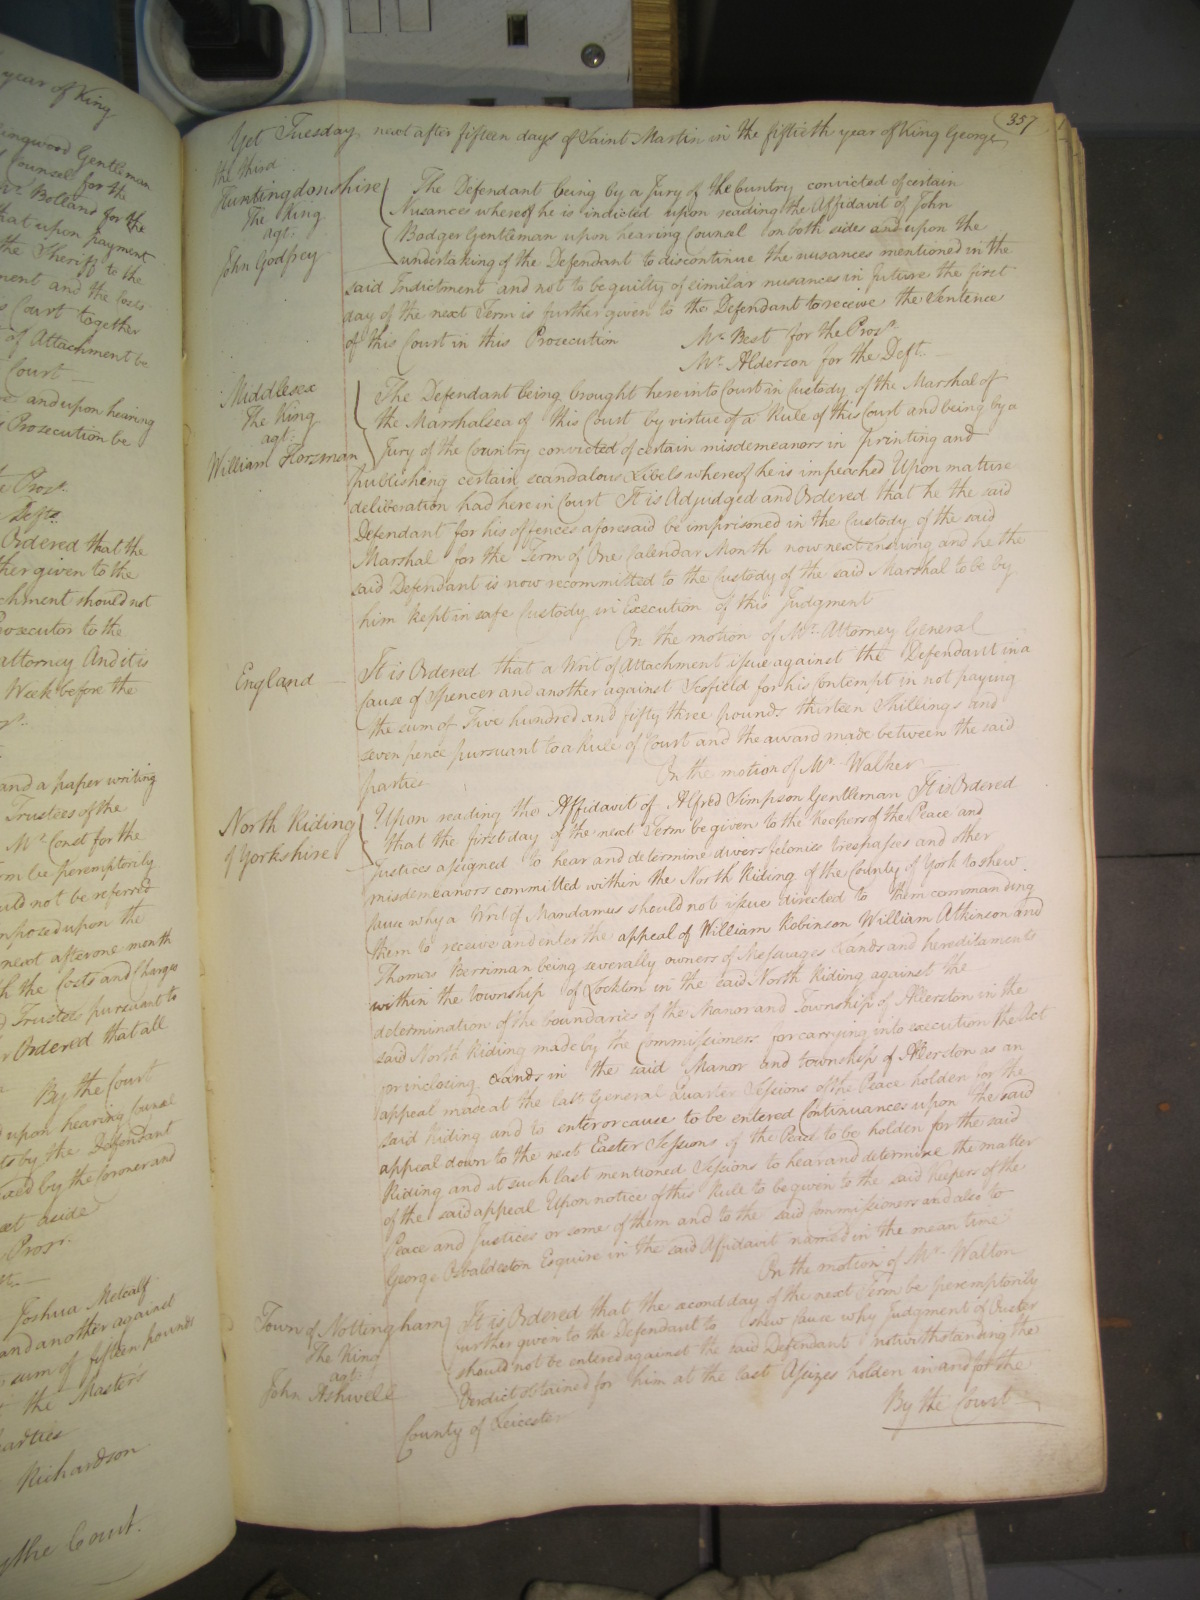 year of King
Gentleman
Counsel for the
Mr. Bolland for the
that upon payment
the Sheriff to the
ment and the Costs
Court together
of Attachment be
Court
and upon hearing
Prosecution be
Prosr.
Deft.
Ordered that the
ther given to the
chment should not
Prosecutor to the
attorney And it is
Week before the
and a paper writing
Trustees of the
Mr. Const for the
rm be peremptorily
uld not be referred
mposed upon the
next after one month
h the Costs and Charges
d Trustees pursuant to
r Ordered that all
By the Court
upon hearing Counsel
ts by the Defendant
ed by the Coroner and
set aside
Prosr.
Joshua Metcalf
and another against
sum of fifteen pounds
the Master's
parties
Richardson
the Court.
357
Yet Tuesday next after fifteen days of Saint Martin in the fiftieth year of King George
the third
Huntingdonshire
The King
agt.
John Godfrey
The Defendant being by a Jury of the Country convicted of certain
Nusances whereof he is indicted upon reading the Affidavit of John
Bodger Gentleman upon hearing Counsel on both sides and upon the
undertaking of the Defendant to discontinue the nusances mentioned in the
said Indictment and not to be guilty of similar nusances in future the first
day of the next Term is further given to the Defendant to receive the Sentence
of this Court in this Prosecution Mr. Best for the Prosr.
Mr. Alderson for the Deft.
Middlesex
The King
agt.
William Horsman
The Defendant being brought here into Court in Custody of the Marshal of
the Marshalsea of this Court by virtue of a Rule of this Court and being by a
Jury of the Country convicted of certain misdemeanors in printing and
publishing certain scandalous Libels whereof he is impeached Upon mature
deliberation had here in Court It is Adjudged and Ordered that he the said
Defendant for his offences aforesaid be imprisoned in the Custody of the said
Marshal for the Term of One Calendar Month now next ensuing and he the
said Defendant is now recommitted to the Custody of the said Marshal to be by
him kept in safe Custody in Execution of this Judgment
On the motion of Mr. Attorney General
England
It is Ordered that a Writ of Attachment issue against the Defendant in a
Cause of Spencer and another against Scofield for his Contempt in not paying
the sum of Five hundred and fifty three pounds thirteen Shillings and
seven pence pursuant to a Rule of Court and the award made between the said
parties
On the motion of Mr. Walker
North Riding
of Yorkshire
Upon reading the Affidavit of Alfred Simpson Gentleman It is Ordered
that the first day of the next Term be given to the Keepers of the Peace and
Justices assigned to hear and determine divers felonies trespasses and other
misdemeanors committed within the North Riding of the County of York to shew
Cause why a Writ of Mandamus should not issue directed to them commanding
them to receive and enter the appeal of William Robinson William Atkinson and
Thomas Berriman being severally owners of Messuages Lands and hereditaments
within the township of Lockton in the said North Riding against the
determination of the boundaries of the Manor and Township of Allerston in the
said North Riding made by the Commissioners for carrying into execution the Act
for inclosing Lands in the said Manor and township of Allerston as an
appeal made at the last General Quarter Sessions of the Peace holden for the
said Riding and to enter or cause to be entered Continuances upon the said
appeal down to the next Easter Sessions of the Peace to be holden for the said
Riding and at such last mentioned Sessions to hear and determine the matter
of the said appeal Upon notice of this Rule to be given to the said Keepers of the
Peace and Justices or some of them and to the said Commissioners and also to
George Osbaldeston Esquire in the said Affidavit named in the mean time
On the motion of Mr. Walton
Town of Nottingham
The King
agt.
John Ashwell
It is Ordered that the second day of the next Term be peremptorily
further given to the Defendant to shew Cause why Judgment of Ouster
should not be entered against the said Defendant notwithstanding the
Verdict obtained for him at the last Assizes holden in and for the
County of Leicester
By the Court